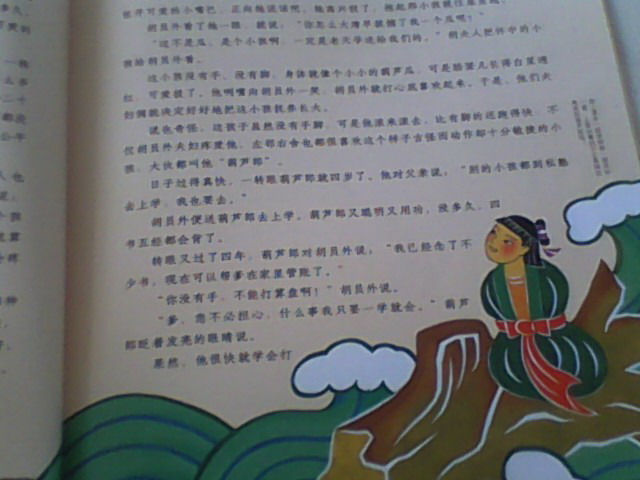 张开可爱的小嘴巴，正向她说话呢。她高兴极了，抱起那小孩就往屋里跑。
胡员外看了她一眼，就说：“你怎么大清早就摘了我一个瓜呢！”
“这不是瓜，是个小孩啊，一定是老天爷送给我们的。”胡夫人把怀中的小
孩给胡员外看。
这小孩没有手，没有脚，身体就像个小小的葫芦瓜，可是脸蛋儿长得白里透
红，可爱极了。他咧嘴向胡员外一笑，胡员外就打心底喜欢起来。于是，他们夫
妇俩就决定好好地把这小孩抚养长大。
说也奇怪，这孩子虽然没有手脚，可是他滚来滚去，比有脚的还跑得快，不
仅胡员外夫妇疼爱他，左邻右舍也都很喜欢这个样子古怪而动作却十分敏捷的小
孩，大伙都叫他“葫芦郎”。
日子过得真快，一转眼葫芦郎就四岁了。他对父亲说：“别的小孩都到私塾
去上学，我也要去。”
胡员外便送葫芦郎去上学。葫芦郎又聪明又用功，没多久，四
书五经都会背了。
转眼又过了四年，葫芦郎对胡员外说：“我已经念了不
少书，现在可以帮爹在家里管账了。”
“你没有手，不能打算盘啊！”胡员外说。
“爹，您不必担心，什么事我只要一学就会。”葫芦
郎眨着发亮的眼睛说。
果然，他很快就学会打